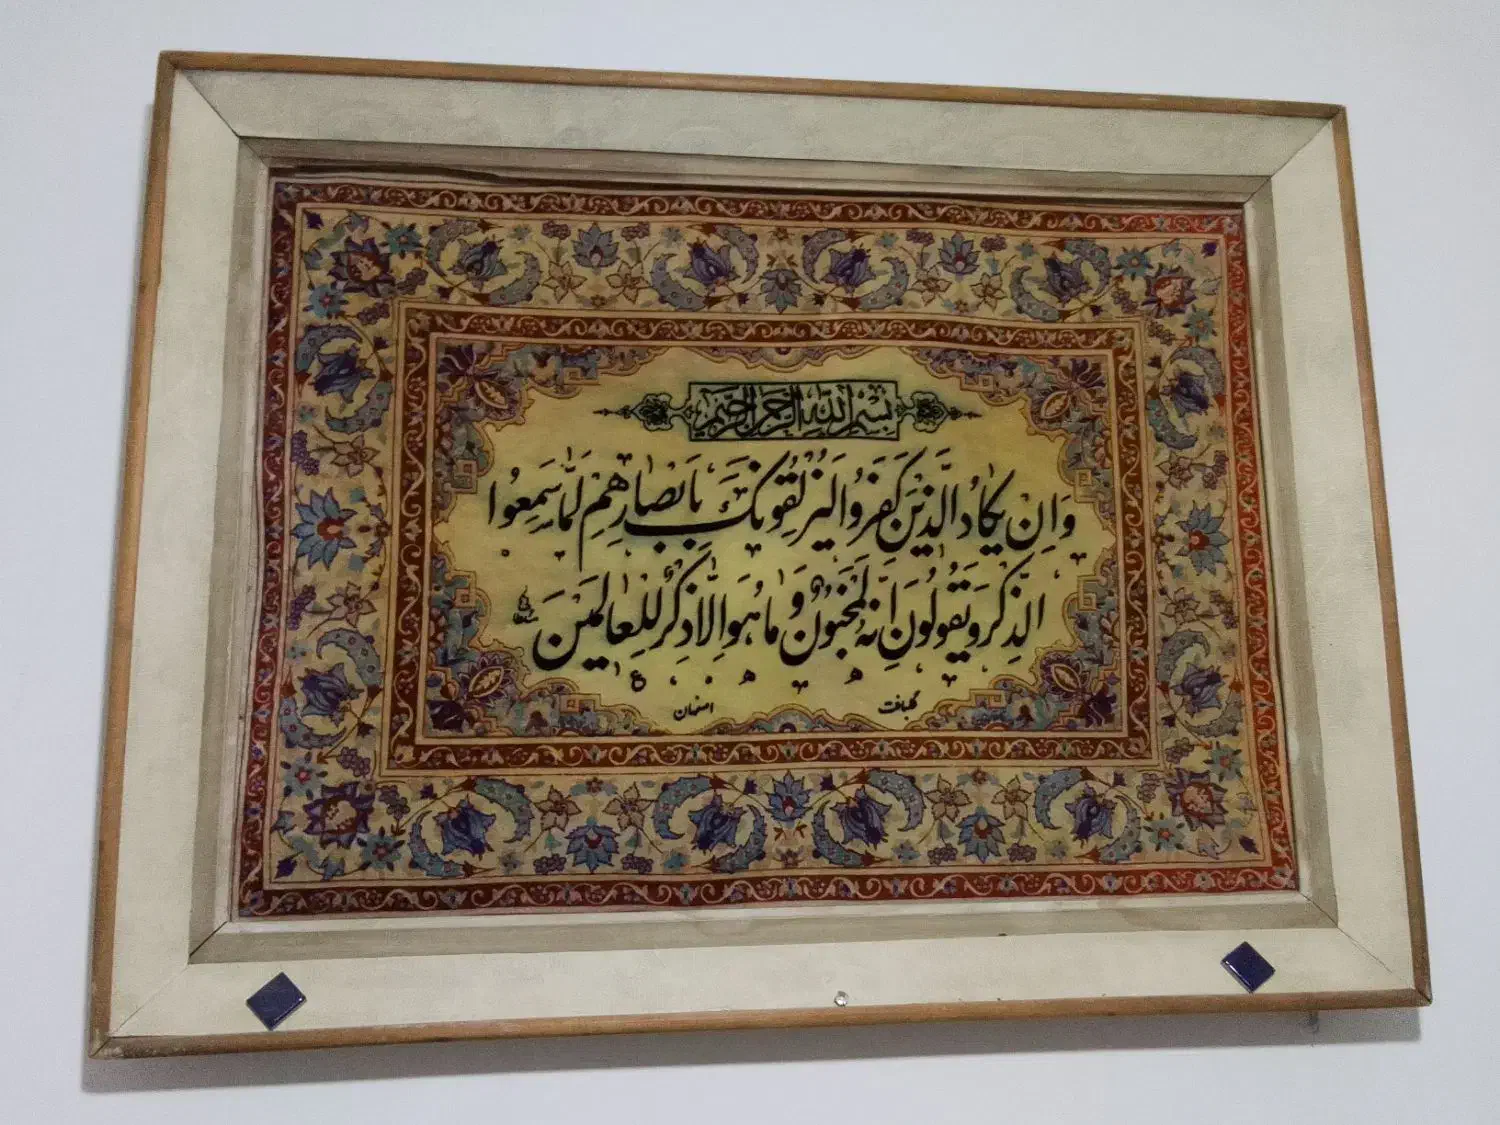 بِسْمِ اللَّهِ الرَّحْمَنِ الرَّحِيمِ
وَاِنْ يَكَادُ الَّذَينَ كَفَرُوا لَيُزْلِقُونَكَ بِاَبْصَارِهِمْ لَمَّا سَمِعُوا
الذِّكْرَ وَيَقُولُونَ اِنَّهُ لَمَجْنُونٌ وَمَا هُوَ اِلَّا ذِكْرٌ لِلْعَالَمِينَ
گلبافت اصفهان